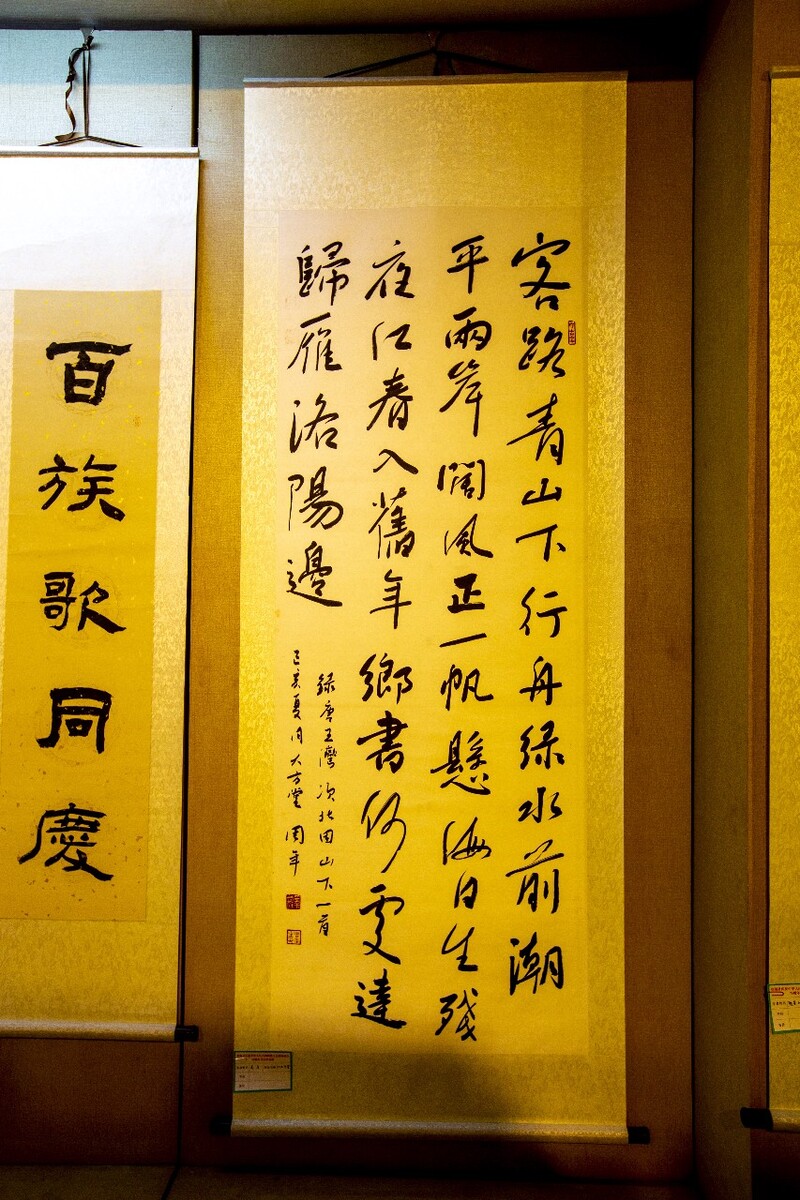 客路青山下行舟綠水前潮
平兩岸闊風正一帆懸海日生殘
夜江春入舊年鄉書何處達
歸雁洛陽邊
録唐王灣次北固山下一首
己亥夏月大方堂周年
百族歌同慶